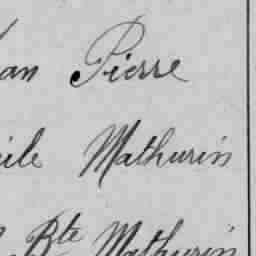 an Pierre
ile Mathurin
Bte Mathurin